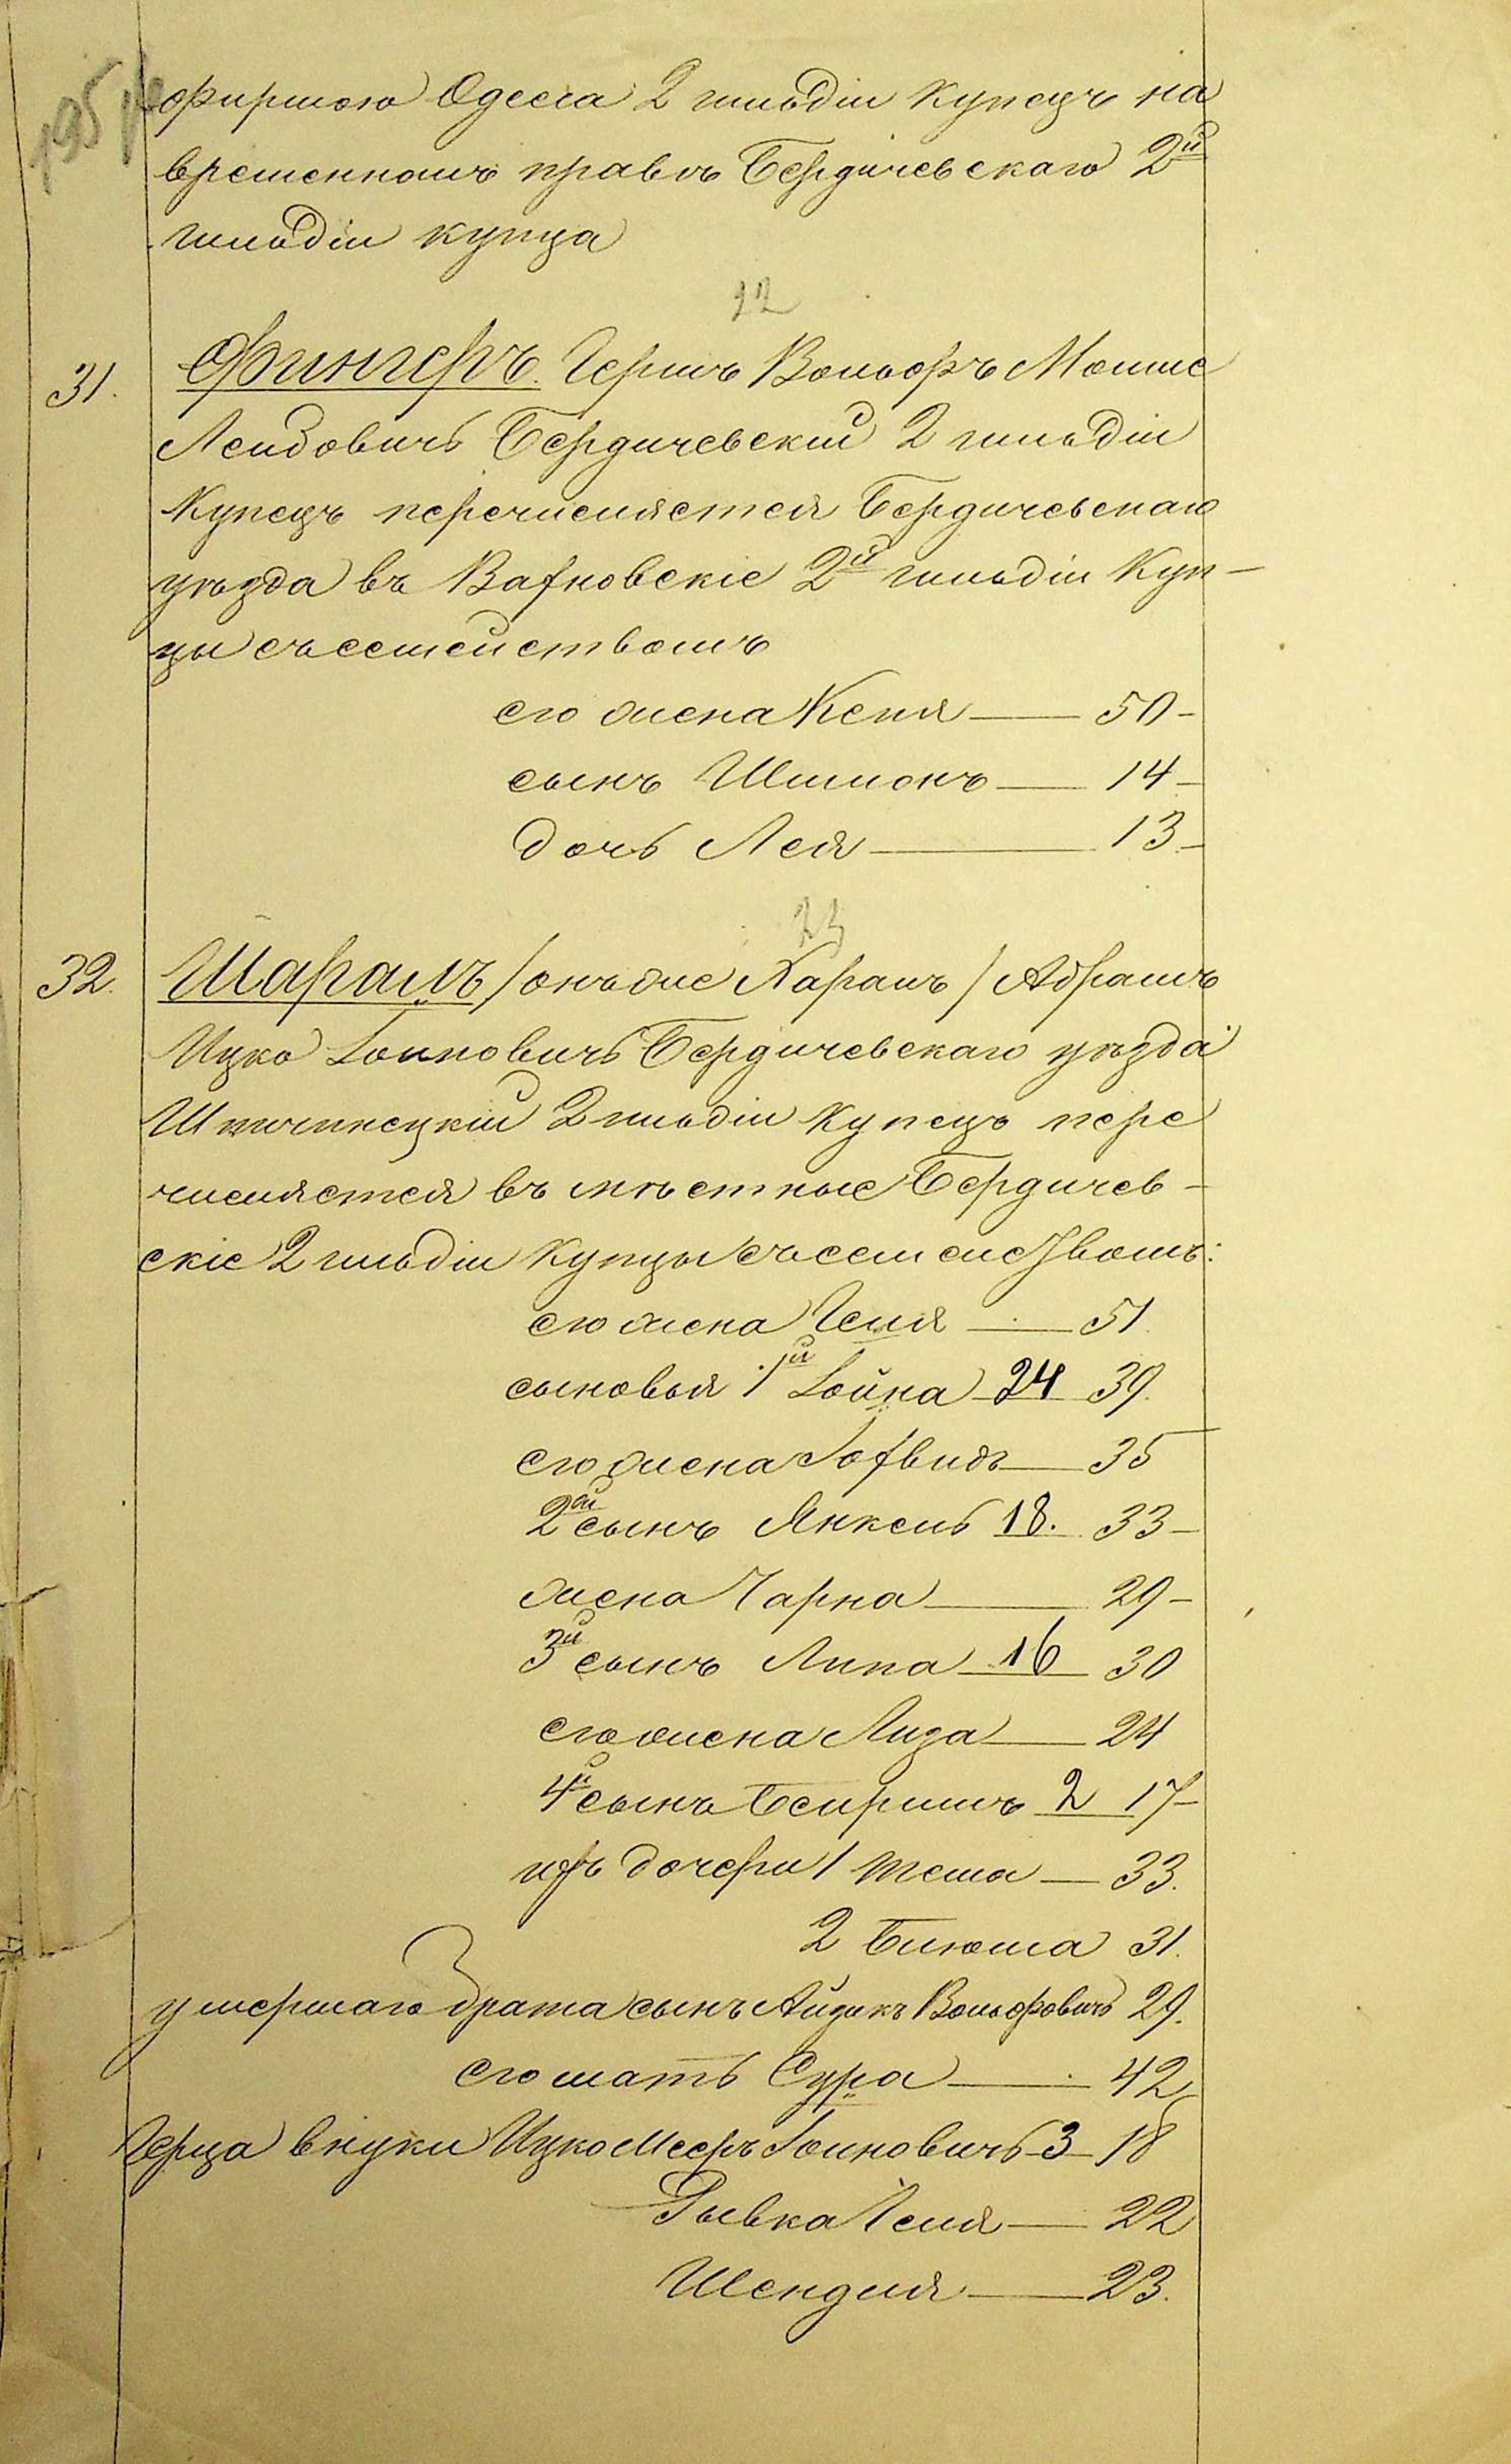 фирмою Одесса 2 гильдіи купецъ на
временномъ правѣ Бердичевскаго 2й
гильдіи купца
22
31. Фингеръ Гершъ Вольфъ Мошко
Лейбовичъ Бердичевский 2 гильдіи
Купецъ перечисляется Бердичевскаго
уѣзда въ Вахновскіе 2й гильдіи Куп-
цы съ семействомъ
его жена Кеня — 50 -
сынъ Шимонъ — 14 -
дочь Лея — 13 -
23
32. Шарамъ / онъ же Харамъ / Абрамъ
Ицко Іойновичъ Бердичевскаго уѣзда
2 гильдіи Купецъ пере
числяется въ мѣстные Бердичев-
скіе 2 гильдіи Купцы съ семействомъ:
его жена Геня — 51.
сыновья 1й Іойна 24 39.
его жена — 35
2й сынъ Янкель 18. 33 -
жена Чарна — 29 -
3й сынъ Липа 16 30
его жена Лиза — 24
4й сынъ Бейришъ 2 17 -
ихъ дочери 1 Тема — 33.
2 Блюма 31.
умершаго брата сынъ Айзикъ Вольфовичъ 29.
его мать Сура — 42
Герца внуки Ицко Мееръ Іойновичъ 3 - 18
Рывка Геня — 22
Шендля — 23.